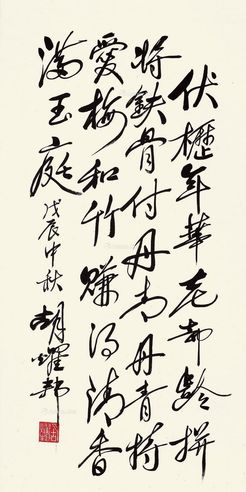 伏櫪年華老齡拼
將鐵骨付丹青丹青特
愛梅和竹賺得清香
滿玉庭
戊辰中秋 胡耀邦